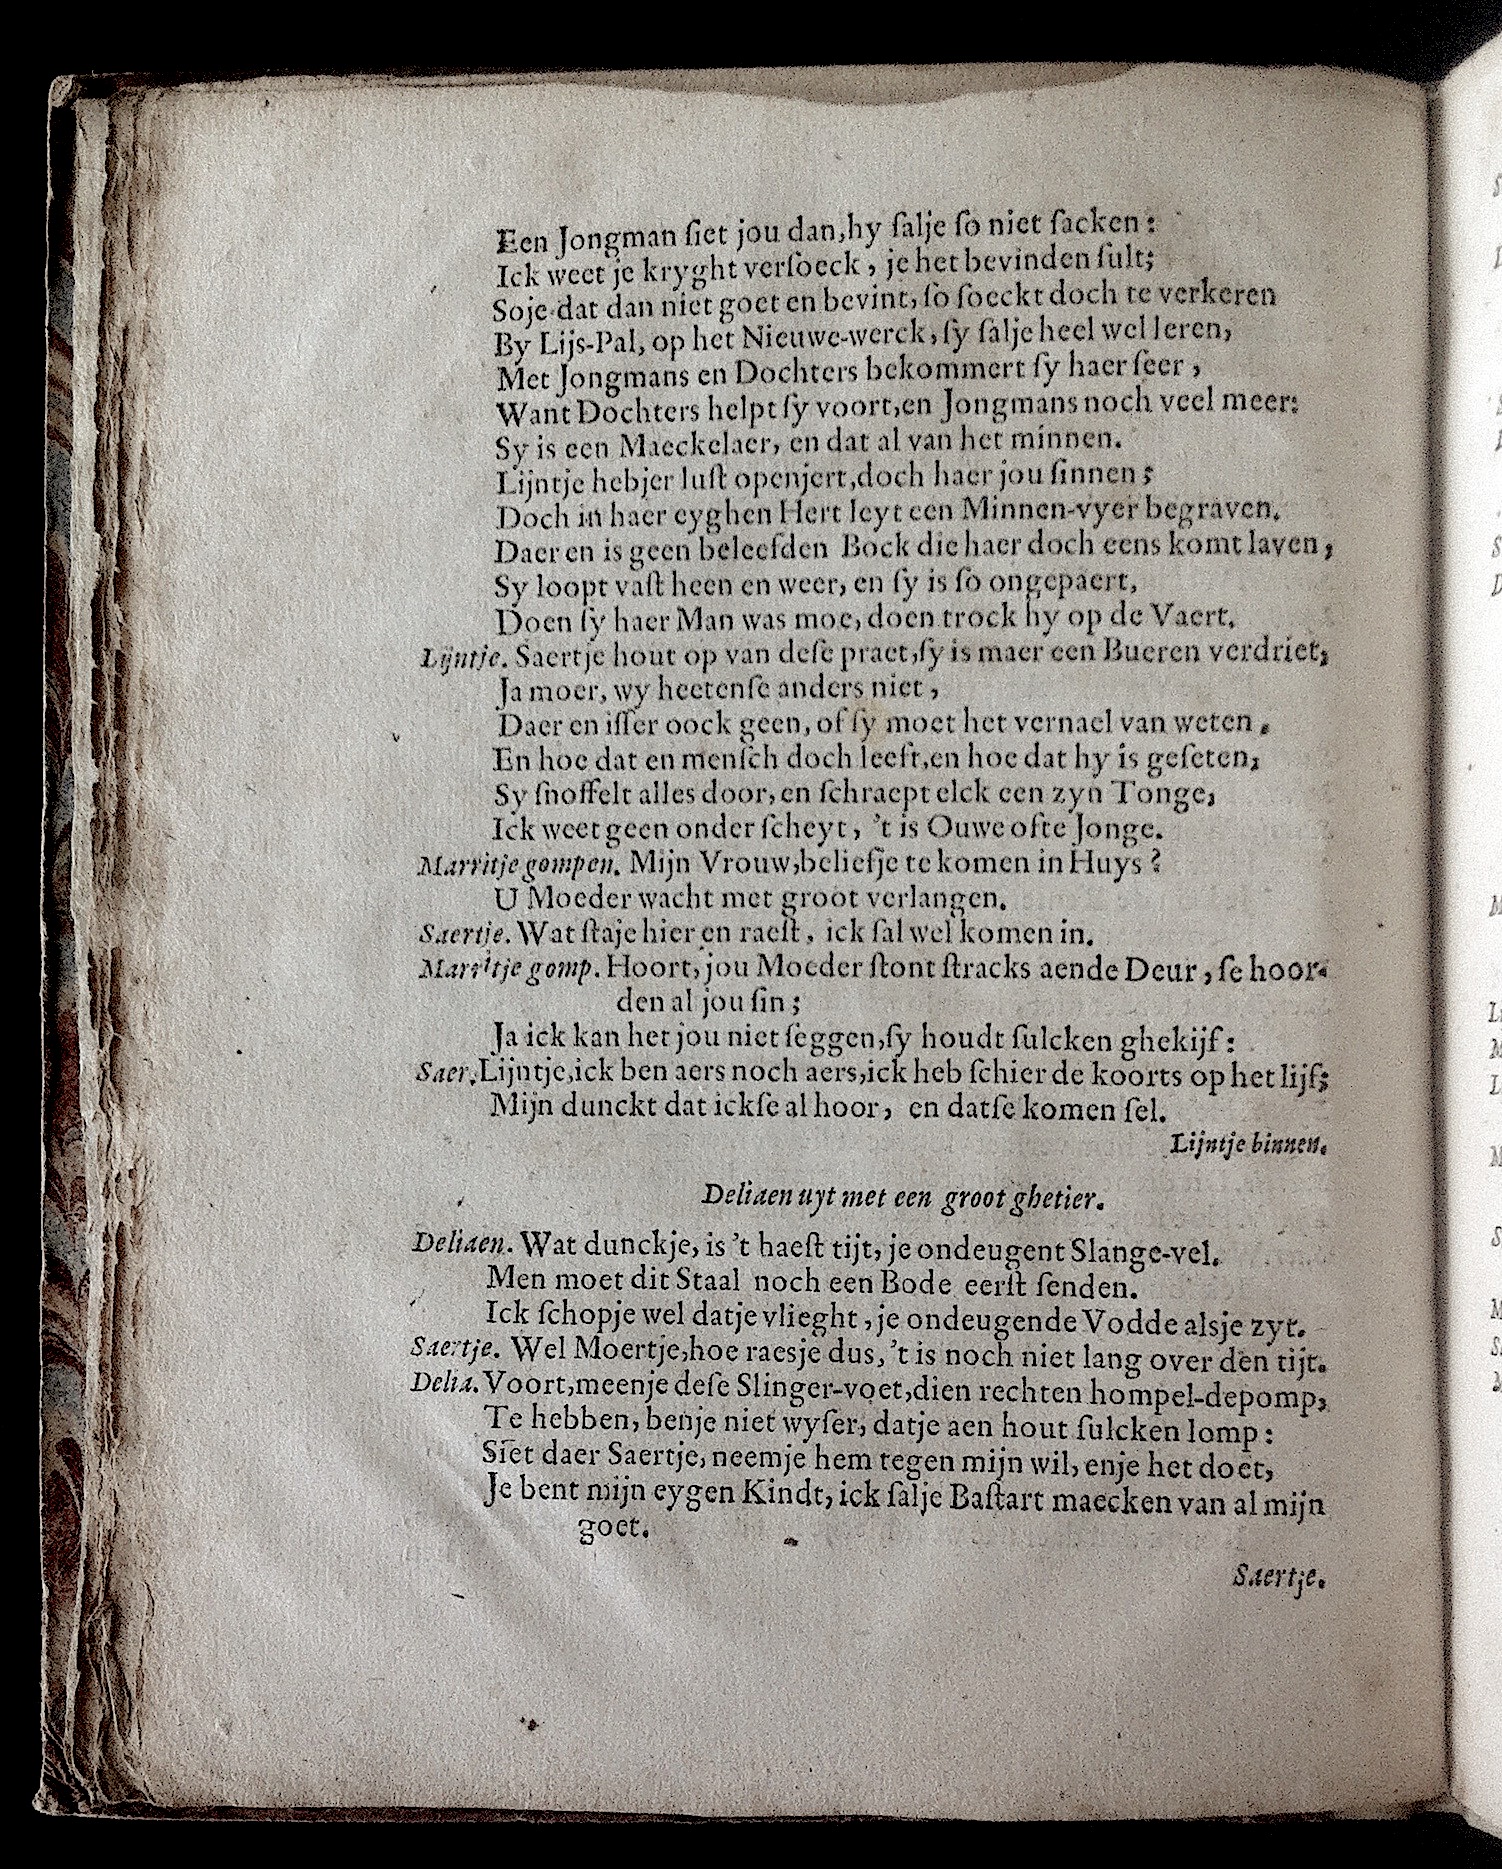 Een Jongman ſiet jou dan, hy ſalje ſo niet ſacken:
Ick weet je kryght verſoeck, je het bevinden ſult;
Soje dat dan niet goet en bevint, ſo ſoeckt doch te verkeren
By Lijs-Pal, op het Nieuwe-werck, ſy ſalje heel wel leren,
Met Jongmans en Dochters bekommert ſy haer ſeer,
Want Dochters helpt ſy voort, en Jongmans noch veel meer:
Sy is een Maeckelaer, en dat al van het minnen.
Lijntje hebjer luſt openjert, doch haer jou ſinnen;
Doch in haer eyghen Hert leyt een Minnen-vyer begraven.
Daer en is geen beleefden Bock die haer doch eens komt laven,
Sy loopt vaſt heen en weer, en ſy is ſo ongepaert,
Doen ſy haer Man was moe, doen trock hy op de Vaert.
Lijntje. Saertje hout op van deſe praet, ſy is maer een Bueren verdriet,
Ja moer, wy heetenſe anders niet,
Daer en iſſer oock geen, of ſy moet het vernael van weten.
En hoe dat en menſch doch leeft, en hoe dat hy is geſeten,
Sy ſnoffelt alles door, en ſchraept elck een zyn Tonge,
Ick weet geen onder ſcheyt, 't is Ouwe ofte Jonge.
Marritje gompen. Mijn Vrouw, beliefje te komen in Huys?
U Moeder wacht met groot verlangen.
Saertje. Wat ſtaje hier en raeſt, ick ſal wel komen in.
Marritje gomp. Hoort, jou Moeder ſtont ſtracks aende Deur, ſe hoor-
den al jou ſin;
Ja ick kan het jou niet ſeggen, ſy houdt ſulcken ghekijf:
Saer. Lijntje, ick ben aers noch aers, ick heb ſchier de koorts op het lijf;
Mijn dunckt dat ickſe al hoor, en datſe komen ſel.
Lijntje binnen.
Deliaen uyt met een groot ghetier.
Deliaen. Wat dunckje, is 't haeſt tijt, je ondeugent Slange-vel.
Men moet dit Staal noch een Bode eerſt ſenden.
Ick ſchopje wel datje vlieght, je ondeugende Vodde alsje zyt.
Saertje. Wel Moertje, hoe raesje dus, 't is noch niet lang over den tijt.
Delia. Voort, meenje deſe Slinger-voet, dien rechten hompel-depomp,
Te hebben, benje niet wyſer, datje aen hout ſulcken lomp:
Siet daer Saertje, neemje hem tegen mijn wil, enje het doet,
Je bent mijn eygen Kindt, ick ſalje Baſtart maecken van al mijn
goet.
Saertje.